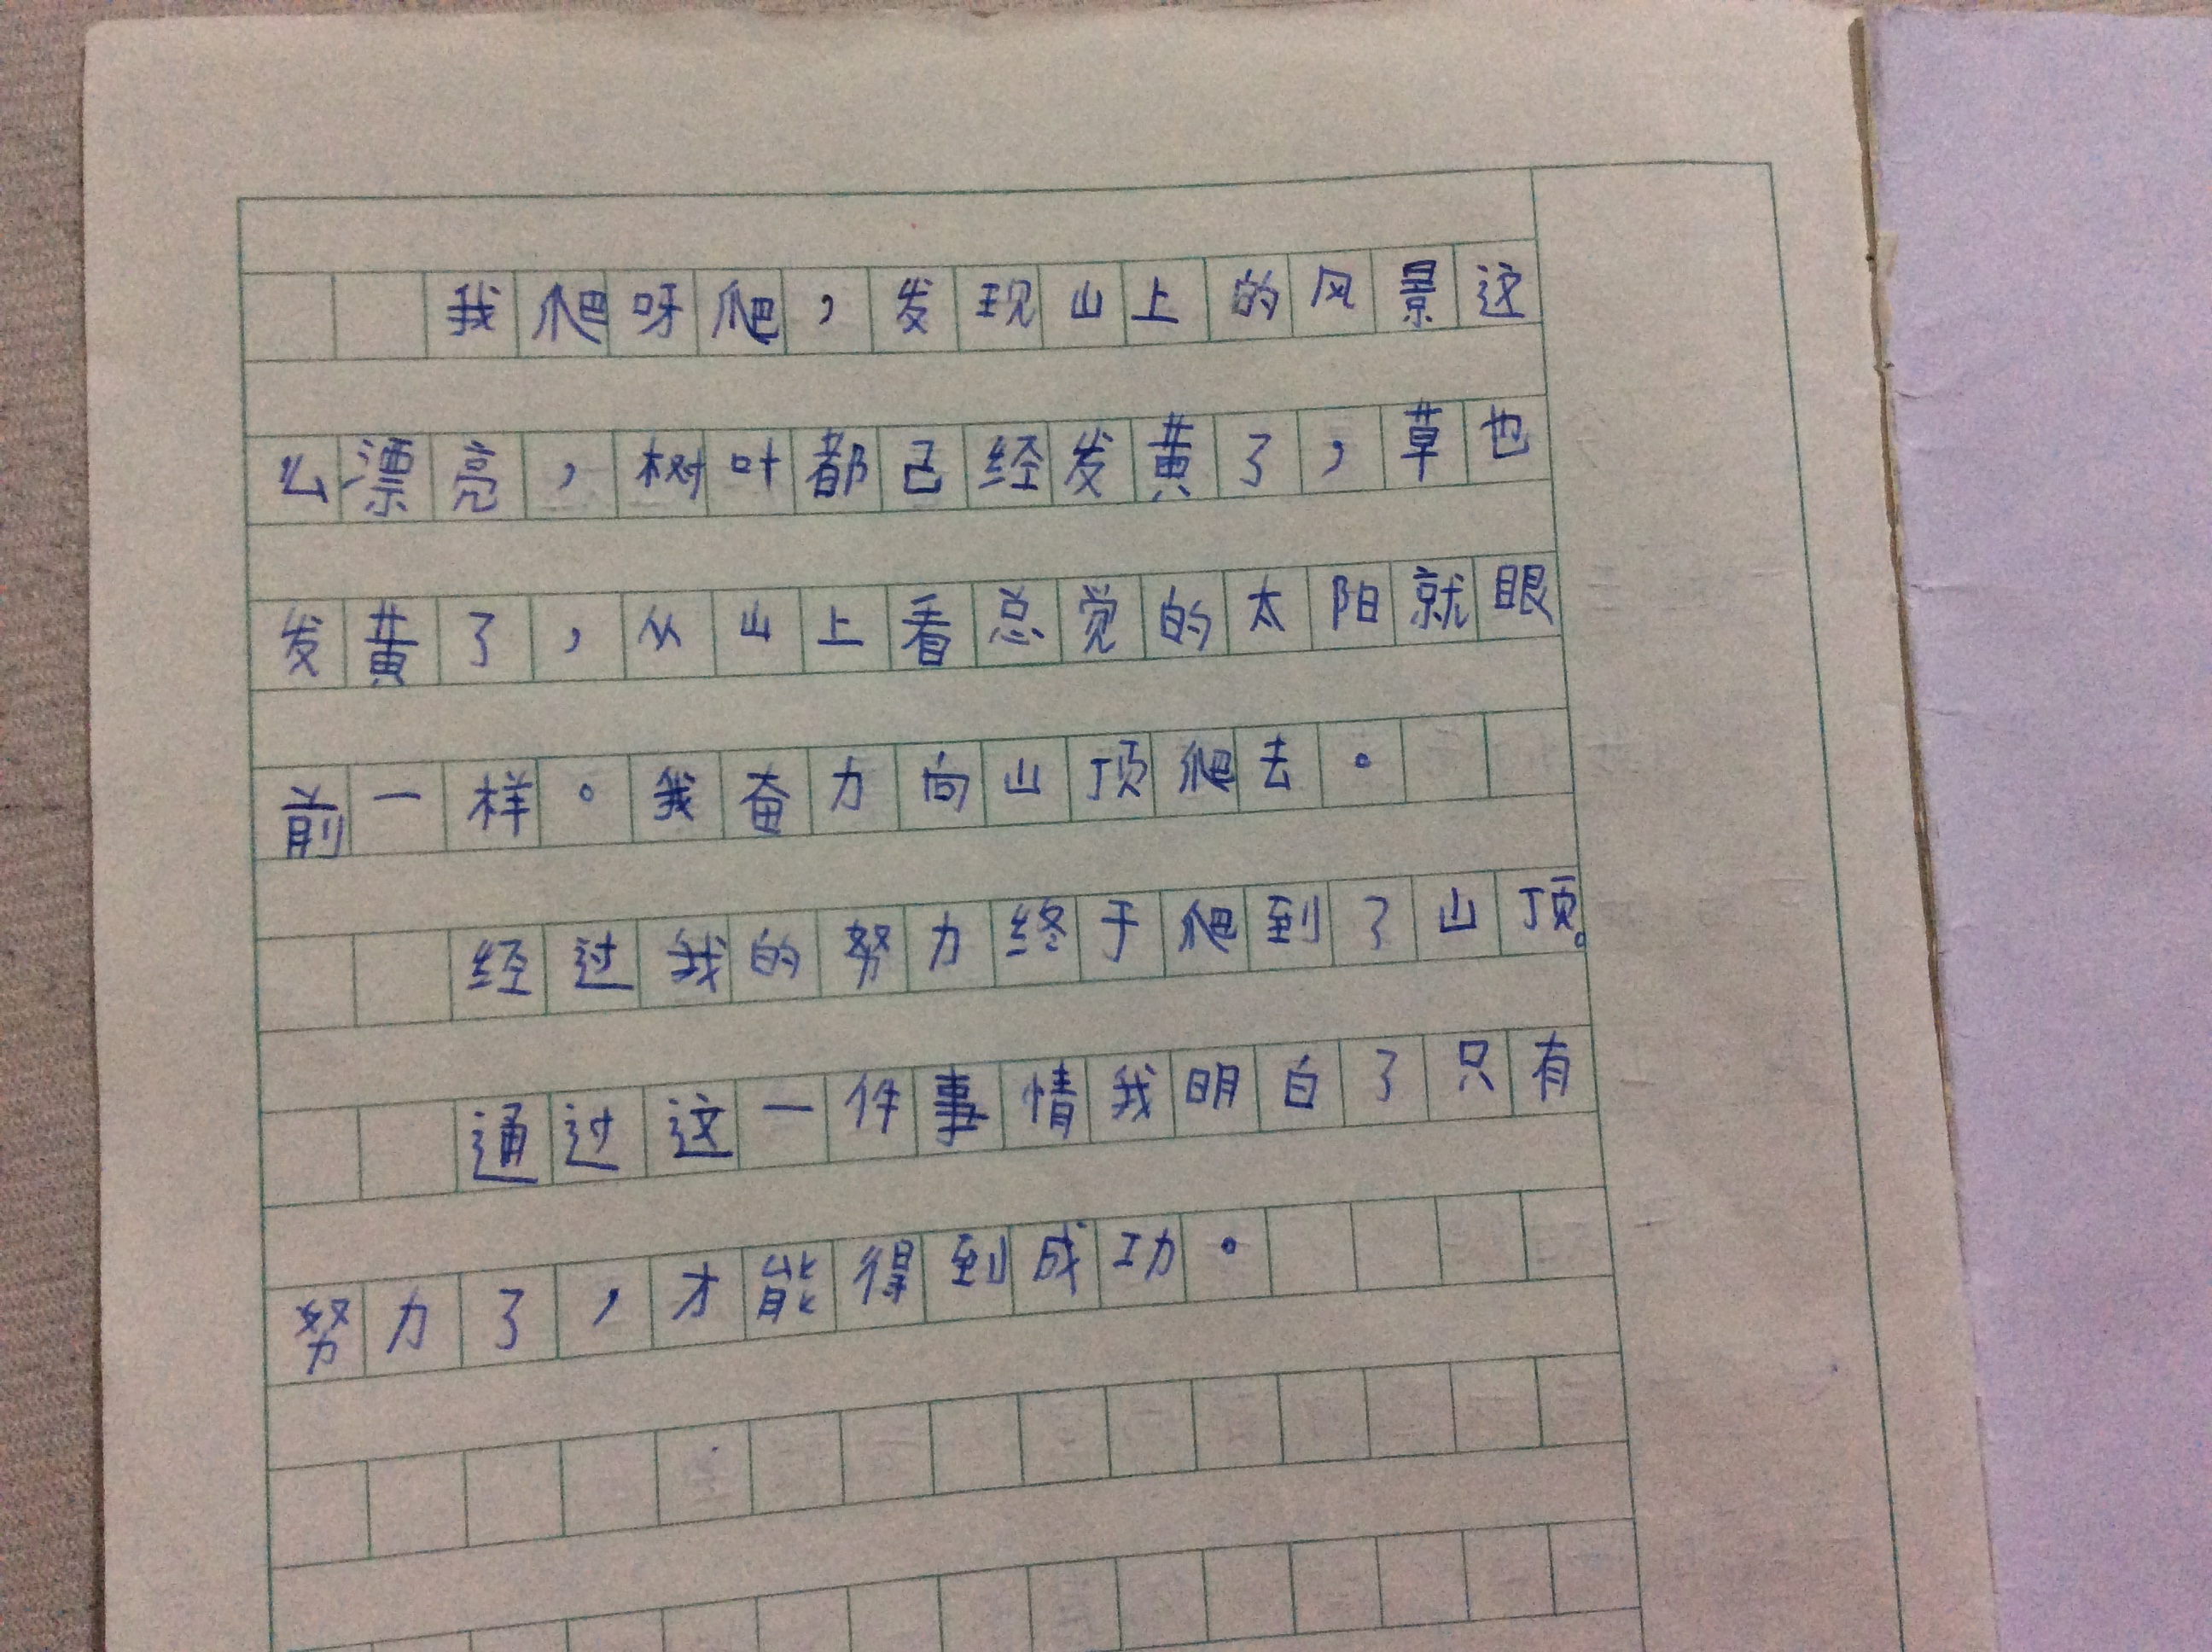 我爬呀爬，发现山上的风景这
么漂亮，树叶都已经发黄了，草也
发黄了，从山上看总觉的太阳就眼
前一样。我奋力向山顶爬去。
经过我的努力终于爬到了山顶。
通过这一件事情我明白了只有
努力了，才能得到成功。